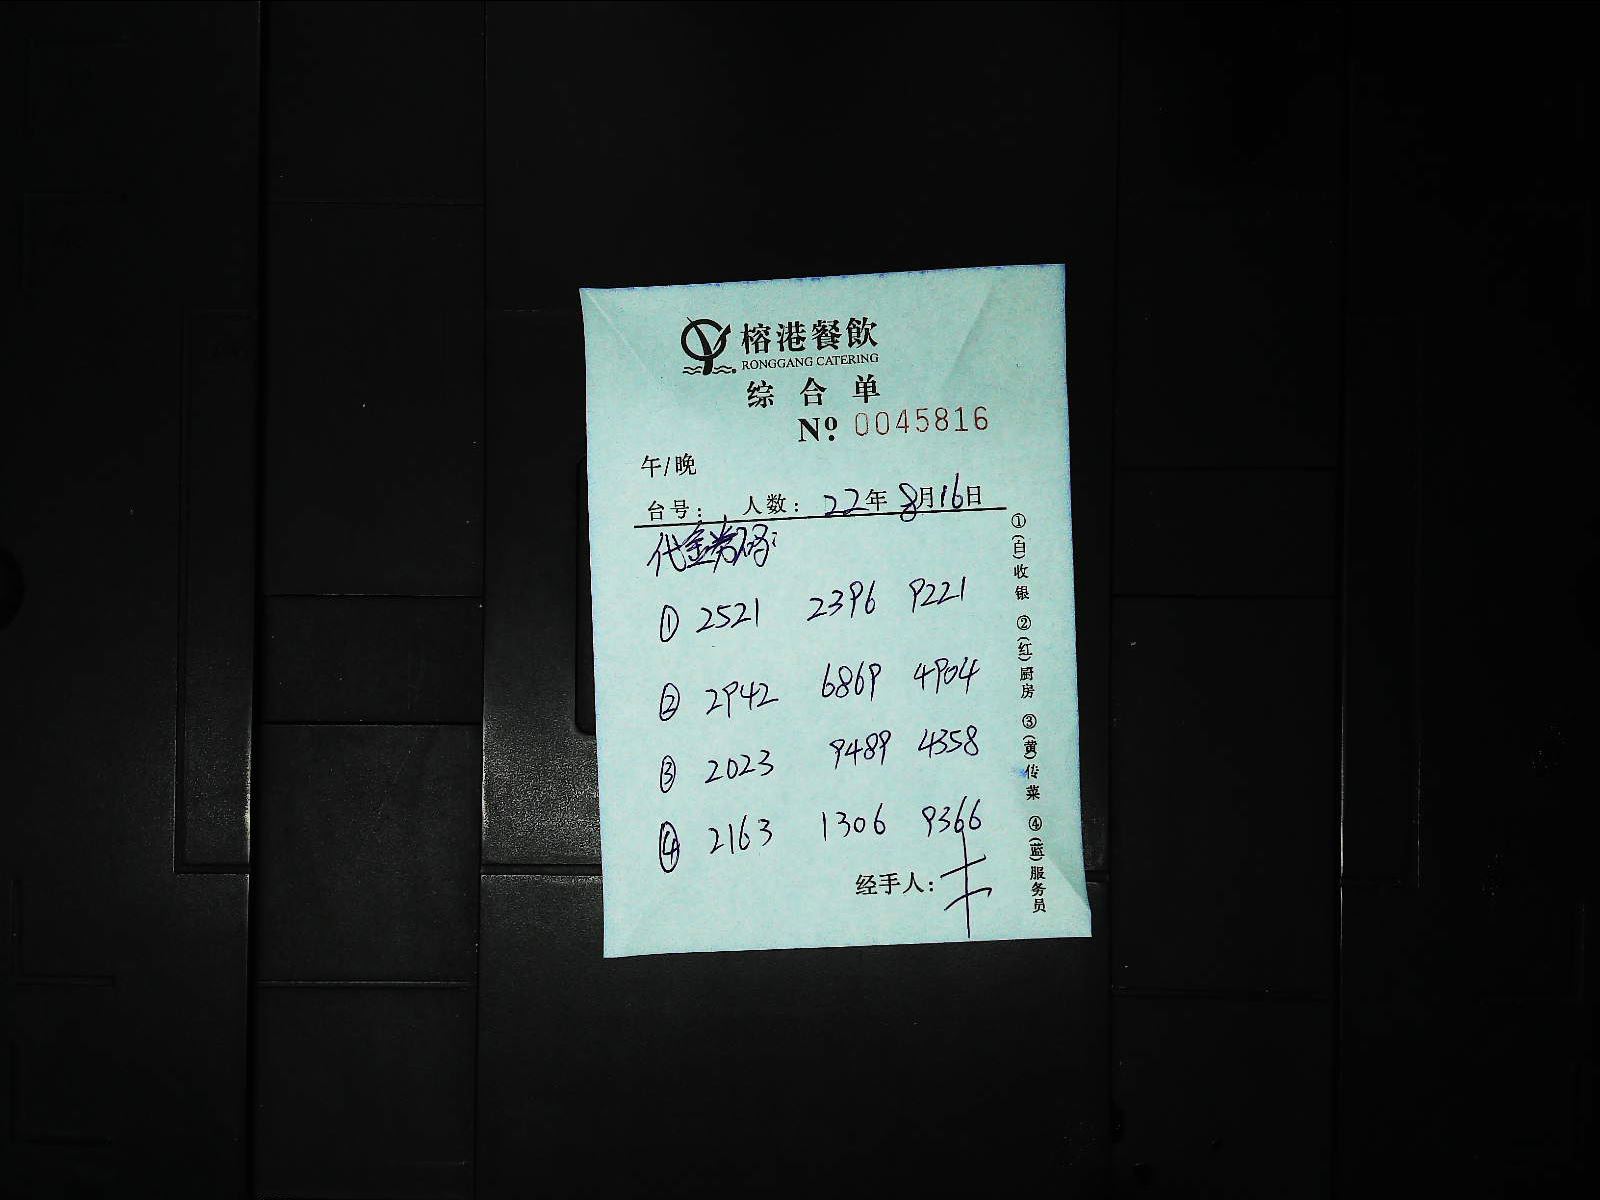 榕港餐飲
RONGGANG CATERING
综合单
№ 0045816
午/晚
台号: 人数: 22年8月16日
代金券码:
① 2521 2396 9221
② 2942 6869 4904
③ 2023 9489 4358
④ 2163 1306 9366
经手人:
①(白)收银 ②(红)厨房 ③(黄)传菜 ④(蓝)服务员